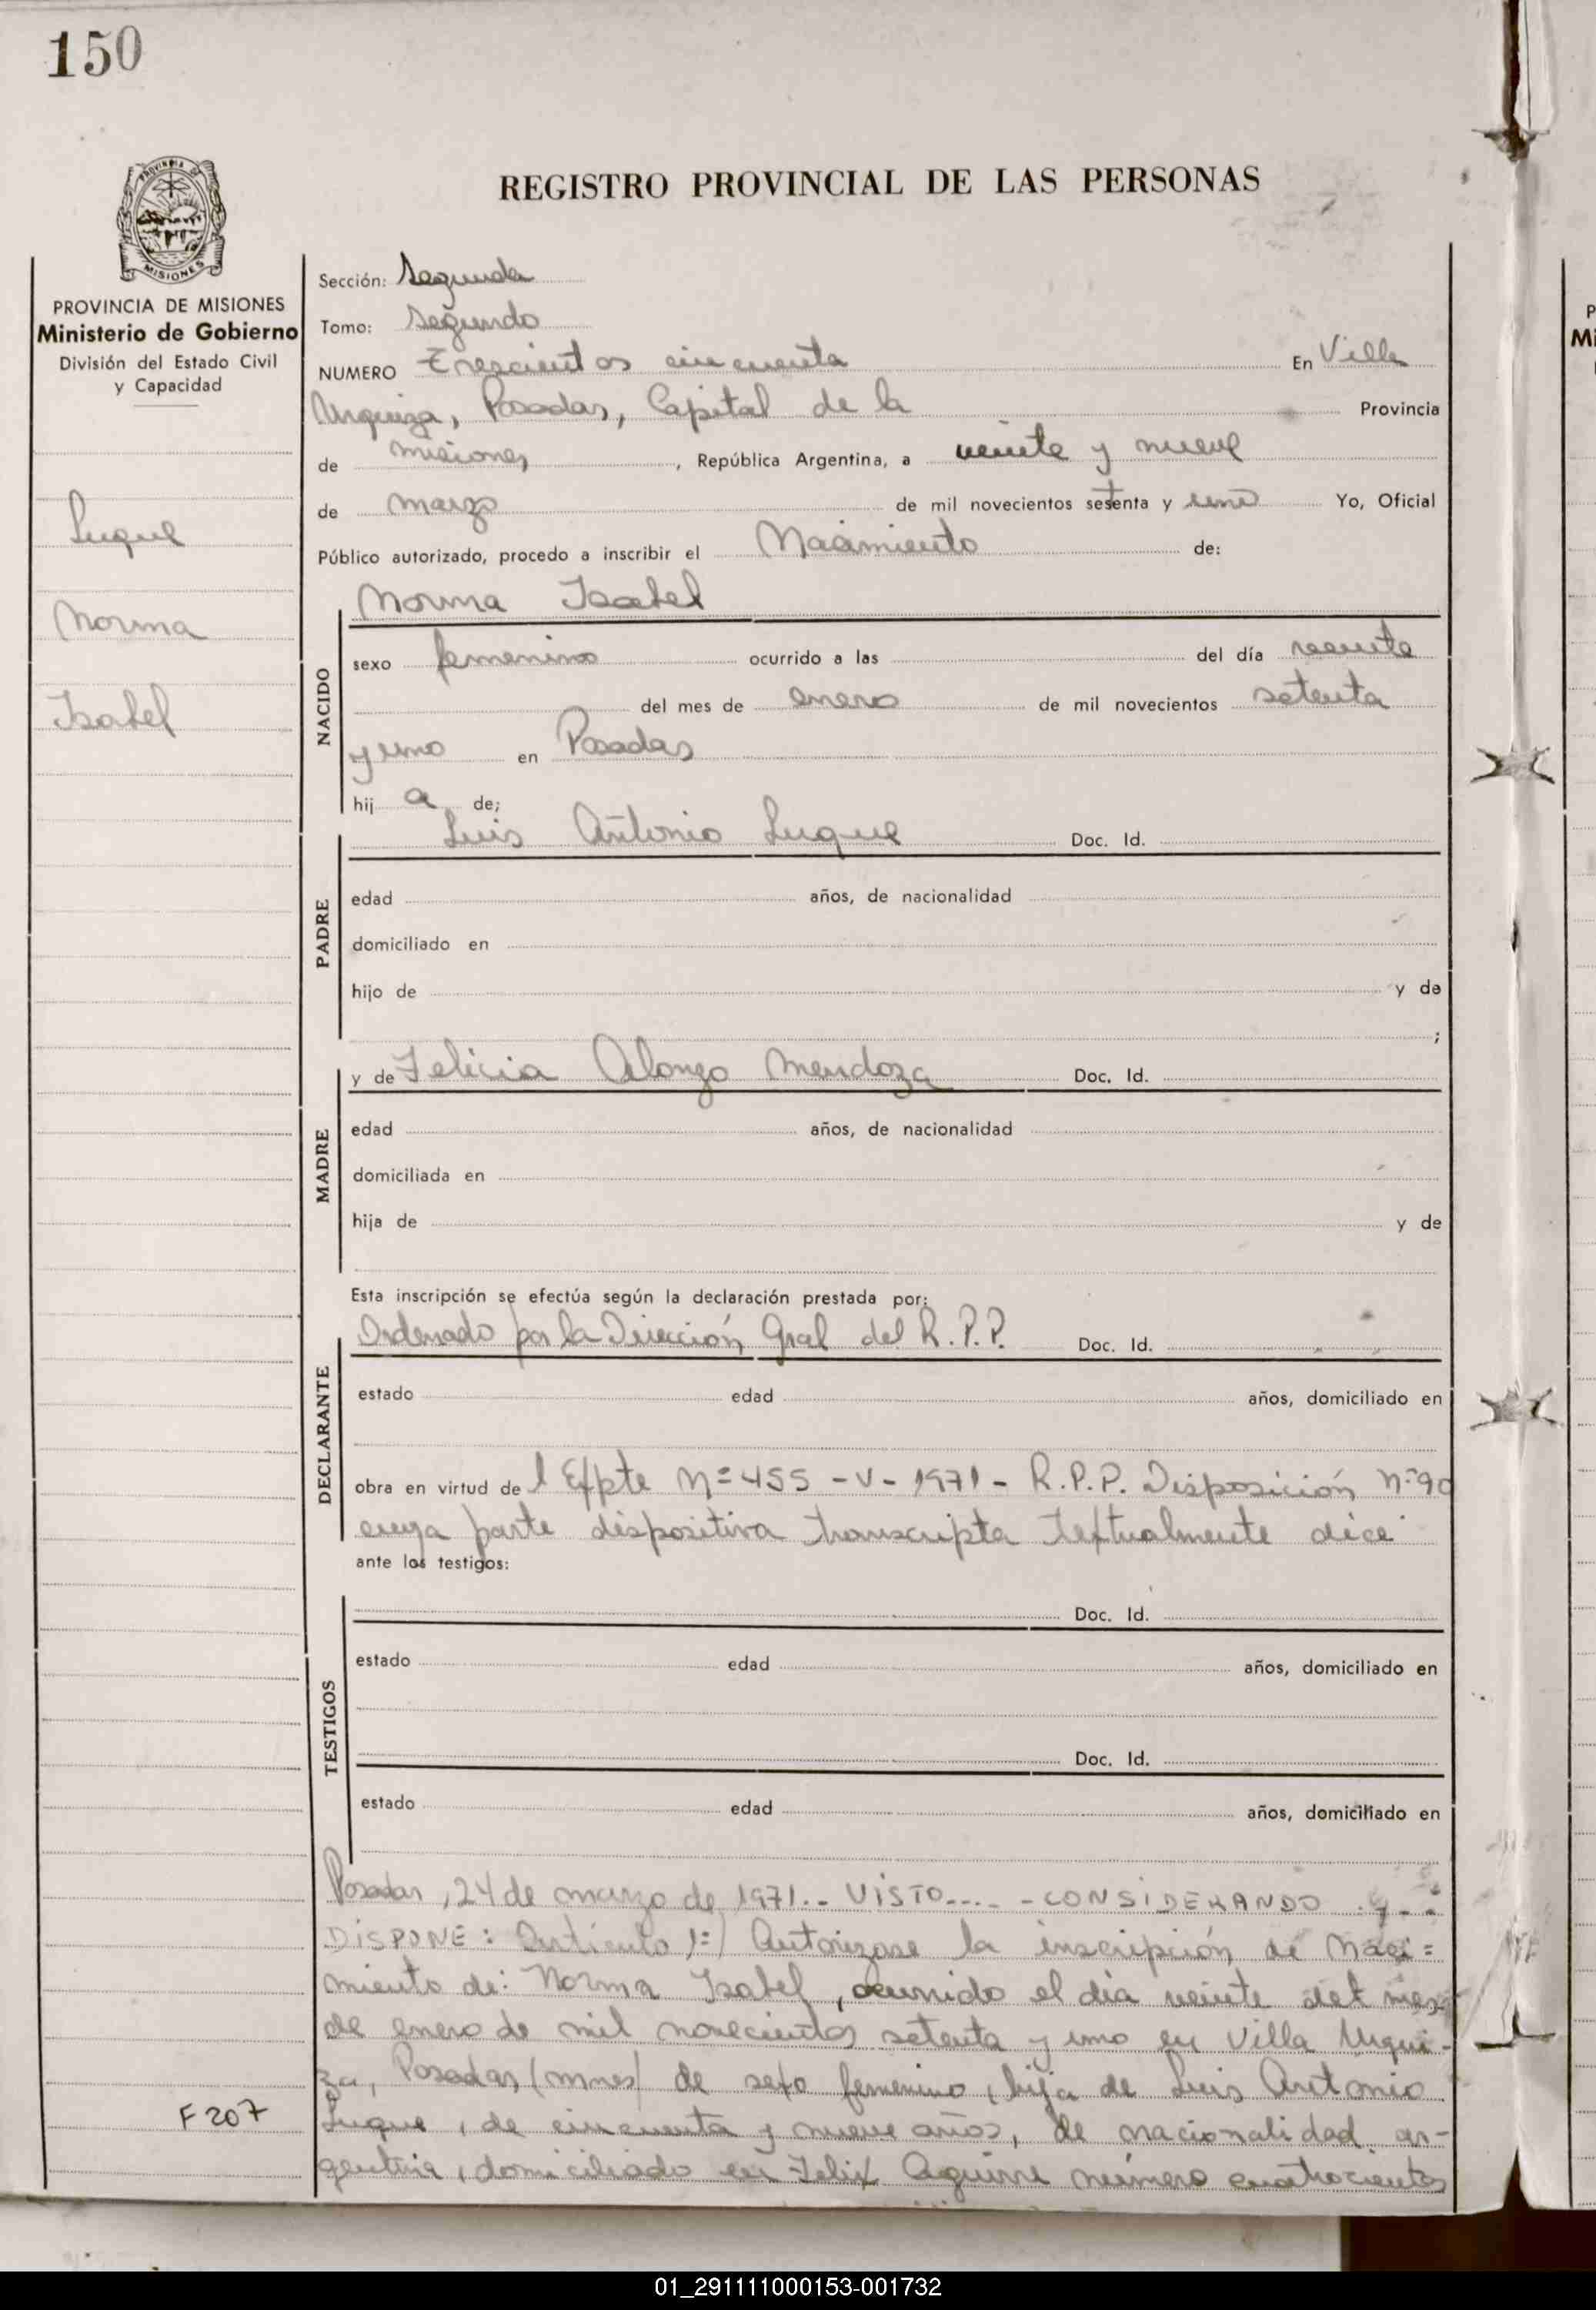 150
PROVINCIA
MISIONES
REGISTRO PROVINCIAL DE LAS PERSONAS
PROVINCIA DE MISIONES
Ministerio de Gobierno
División del Estado Civil
y Capacidad
Luque
Norma
Isabel
F 207
Sección: Segunda
Tomo: Segundo
NUMERO Trescientos cincuenta En Villa
Urquiza, Posadas, Capital de la Provincia
de Misiones, República Argentina, a veinte y nueve
de marzo de mil novecientos setenta y uno Yo, Oficial
Público autorizado, procedo a inscribir el Nacimiento de:
Norma Isabel
NACIDO
sexo femenino ocurrido a las del día veinte
del mes de enero de mil novecientos setenta
y uno en Posadas
hij a de;
Luis Antonio Luque Doc. Id.
PADRE
edad años, de nacionalidad
domiciliado en
hijo de y de
;
y de Felicia Alonzo Mendoza Doc. Id.
MADRE
edad años, de nacionalidad
domiciliada en
hija de y de
Esta inscripción se efectúa según la declaración prestada por:
Ordenado por la Dirección Gral del R.P.P. Doc. Id.
DECLARANTE
estado edad años, domiciliado en
obra en virtud de l Expte Nº 455 - V - 1971 - R.P.P. Disposición Nº 90
cuya parte dispositiva transcripta textualmente dice
ante los testigos:
Doc. Id.
TESTIGOS
estado edad años, domiciliado en
Doc. Id.
estado edad años, domiciliado en
Posadas, 24 de marzo de 1971.- VISTO.... - CONSIDERANDO
DISPONE: Artículo 1º) Autorizase la inscripción de Naci=
miento de: Norma Isabel, ocurrido el día veinte del mes
de enero de mil novecientos setenta y uno en Villa Urqui-
za, Posadas (mnes) de sexo femenino, hija de Luis Antonio
Luque, de cincuenta y nueve años, de nacionalidad ar-
gentina, domiciliado en Felix Aguirre número cuatrocientos
P
Mi
01_291111000153-001732